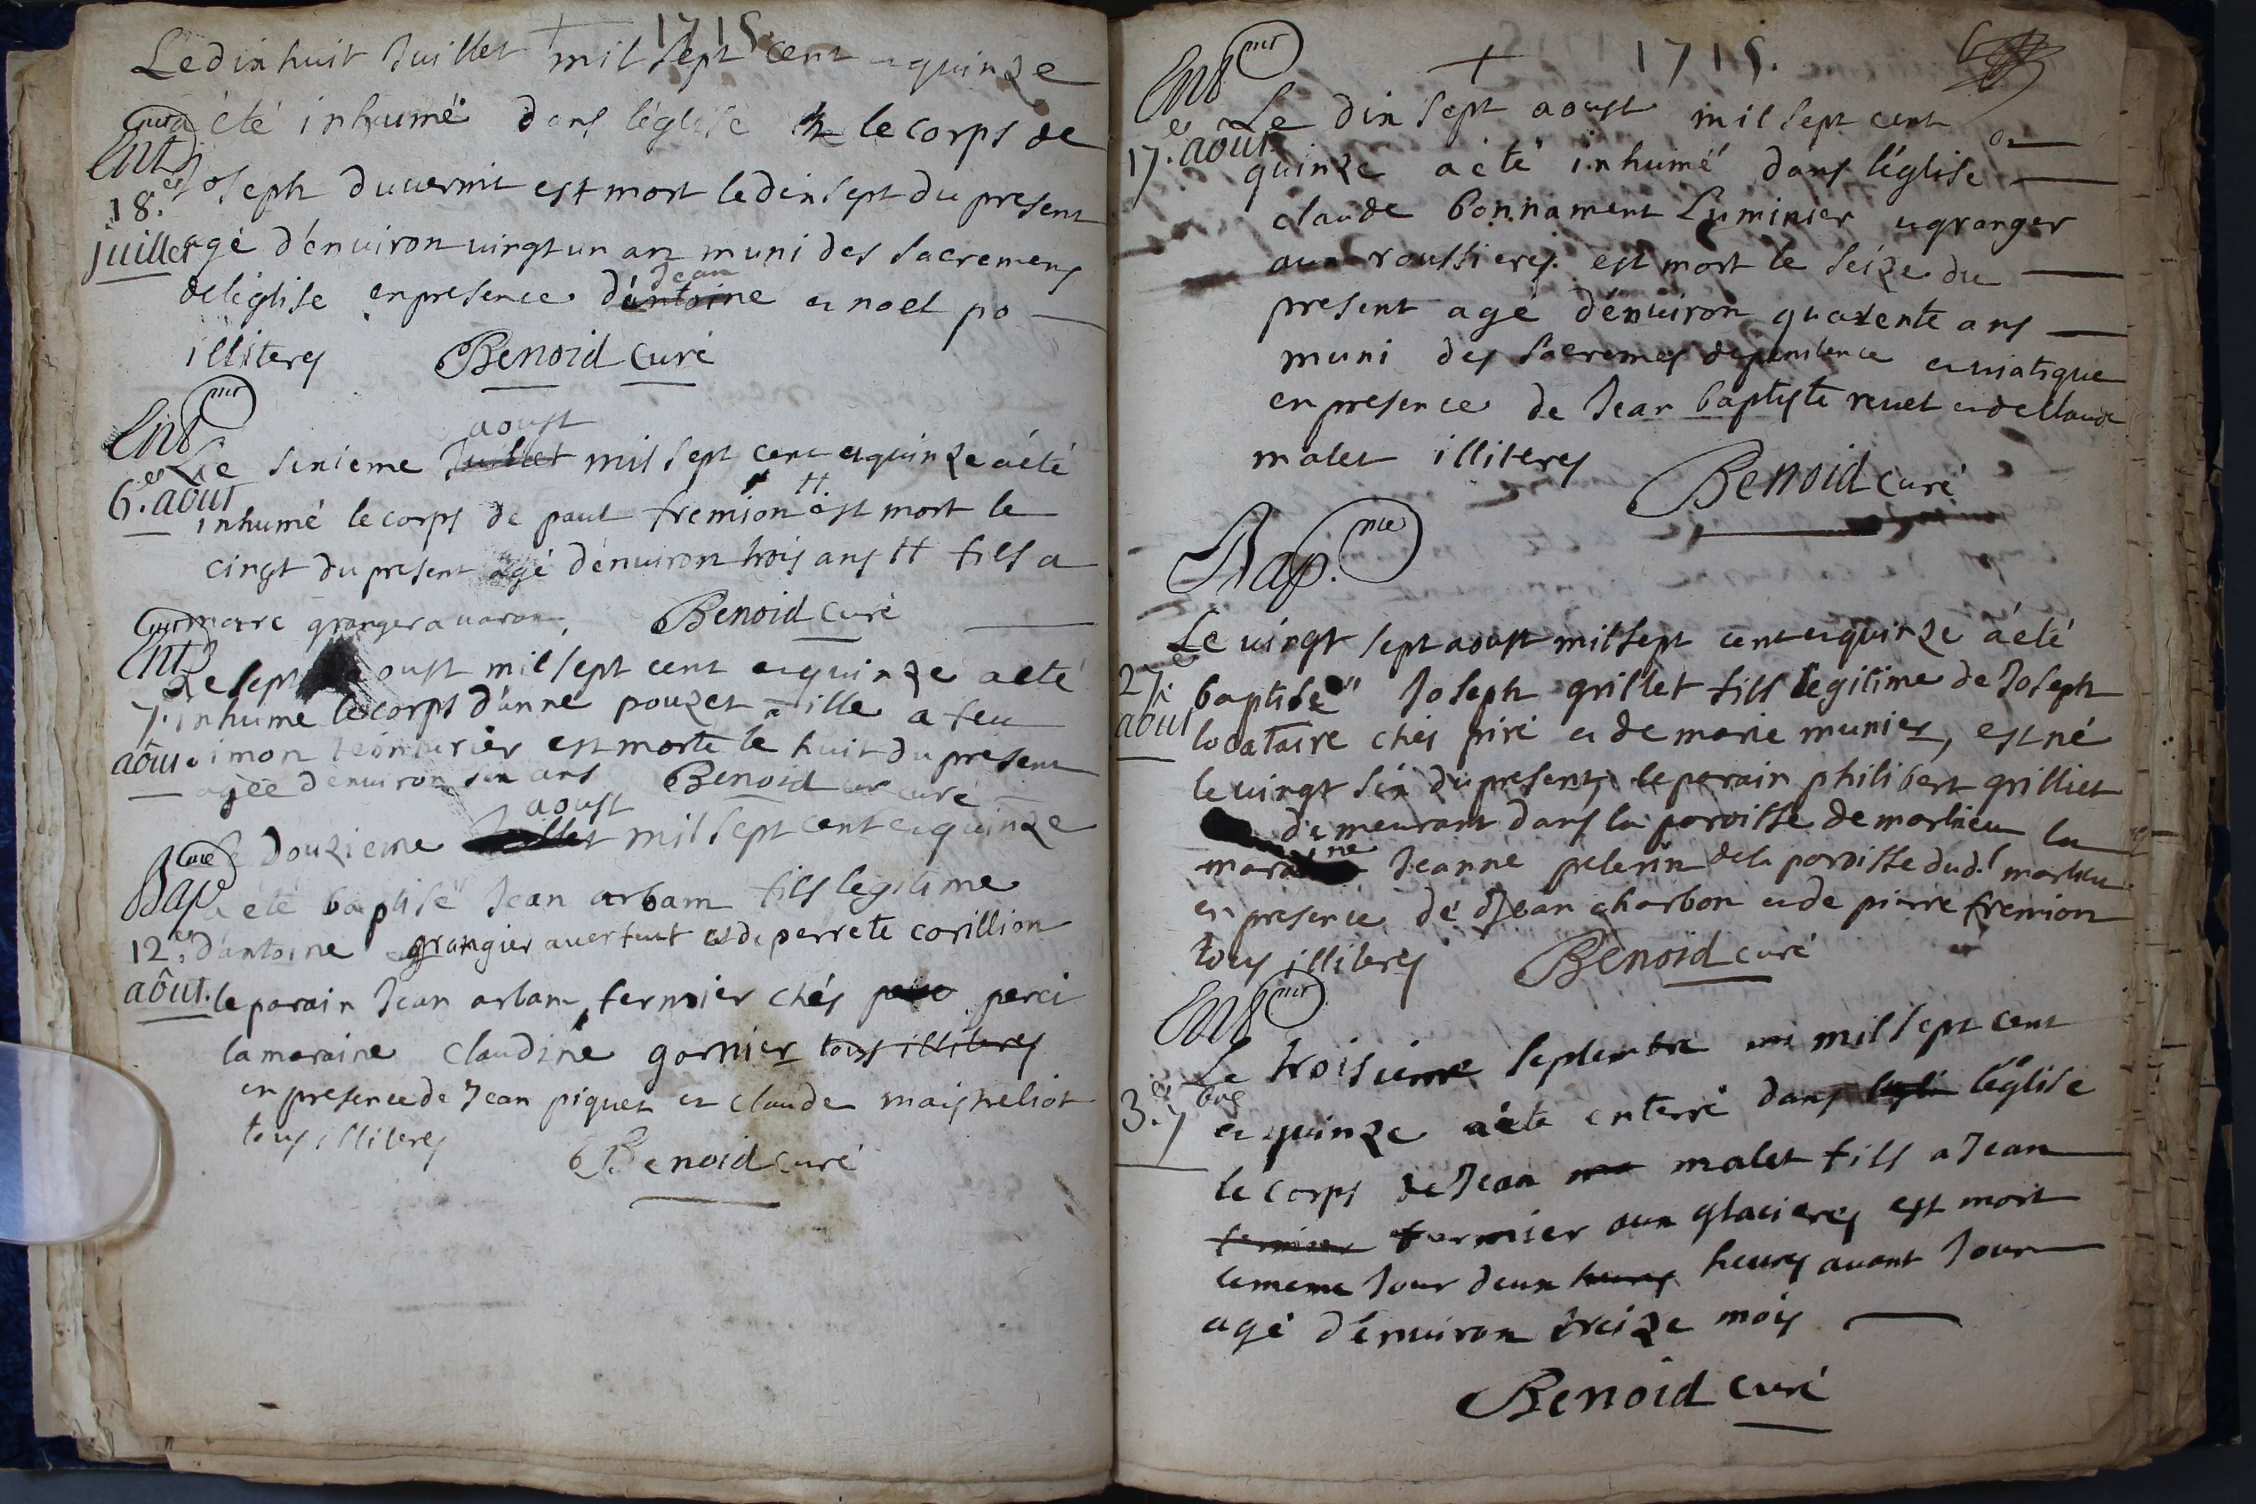 1715.
Le dix huit Juillet mil sept cent et quinze
a été inhumé dans l'église le corps de
Joseph ducermit est mort le dix sept du present
18.e
juillet
agé d'environ vingt un an muni des Sacremens
de l'église en presence d'antoine Jean et noel po
illiteres Benoid curé
Ent
aoust
Le sixieme Juillet mil sept cent et quinze a été
6.e août
inhumé le corps de paul fremion H. est mort le
cinqt du present agé d'environ trois ans H fils a
granger a varon Benoid curé
Ent
Le sept aoust mil sept cent et quinze a été
7.
inhumé le corps d'anne pouzet fille a feu
août
simon teinturier est morte le huit du present
agée d'environ six ans Benoid curé
aoust
Le douzieme Juillet mil sept cent et quinze
Bap
a été baptisé Jean arbam fils legitime
12.e d'antoine grangier a vertfut et de perrete corillion
août. le parain Jean arbam fermier chés perci
la maraine claudine garnier tous illiteres
en presence de Jean piquet et claude maisheliot
tous illiteres
Benoid curé
1715.
Ent mer
Le dix sept aoust mil sept cent et
17.e août
quinze a été inhumé dans l'église
claude bonnament Luminier et granger
aux roussieres est mort le seize du
present agé d'environ quarente ans
muni des Sacremes de penitence et viatique
en presence de Jean baptiste revet et de Claude
malet illiteres
Benoid curé
Bap. me
Le vingt sept aoust mil sept cent et quinze a été
27.e
août
baptisé Joseph grillet fils legitime de Joseph
locataire chés piré et de marie munier, est né
le vingt six du present, le parain philibert grilliet
demeurant dans la paroisse de marlieu la
maraine Jeanne pelerin de la paroisse dud.t marlieu
en presence de Jean charbon et de pierre fremion
tous illiteres Benoid curé
Ent mer
Le troisieme septembre mil sept cent
3.e 7bre
et quinze a été enterré dans l'église
le corps de Jean malet fils a Jean
fermier fermier aux glacieres est mort
le meme Jour deux heures heures avant Jour
agé d'environ treize mois
Benoid curé